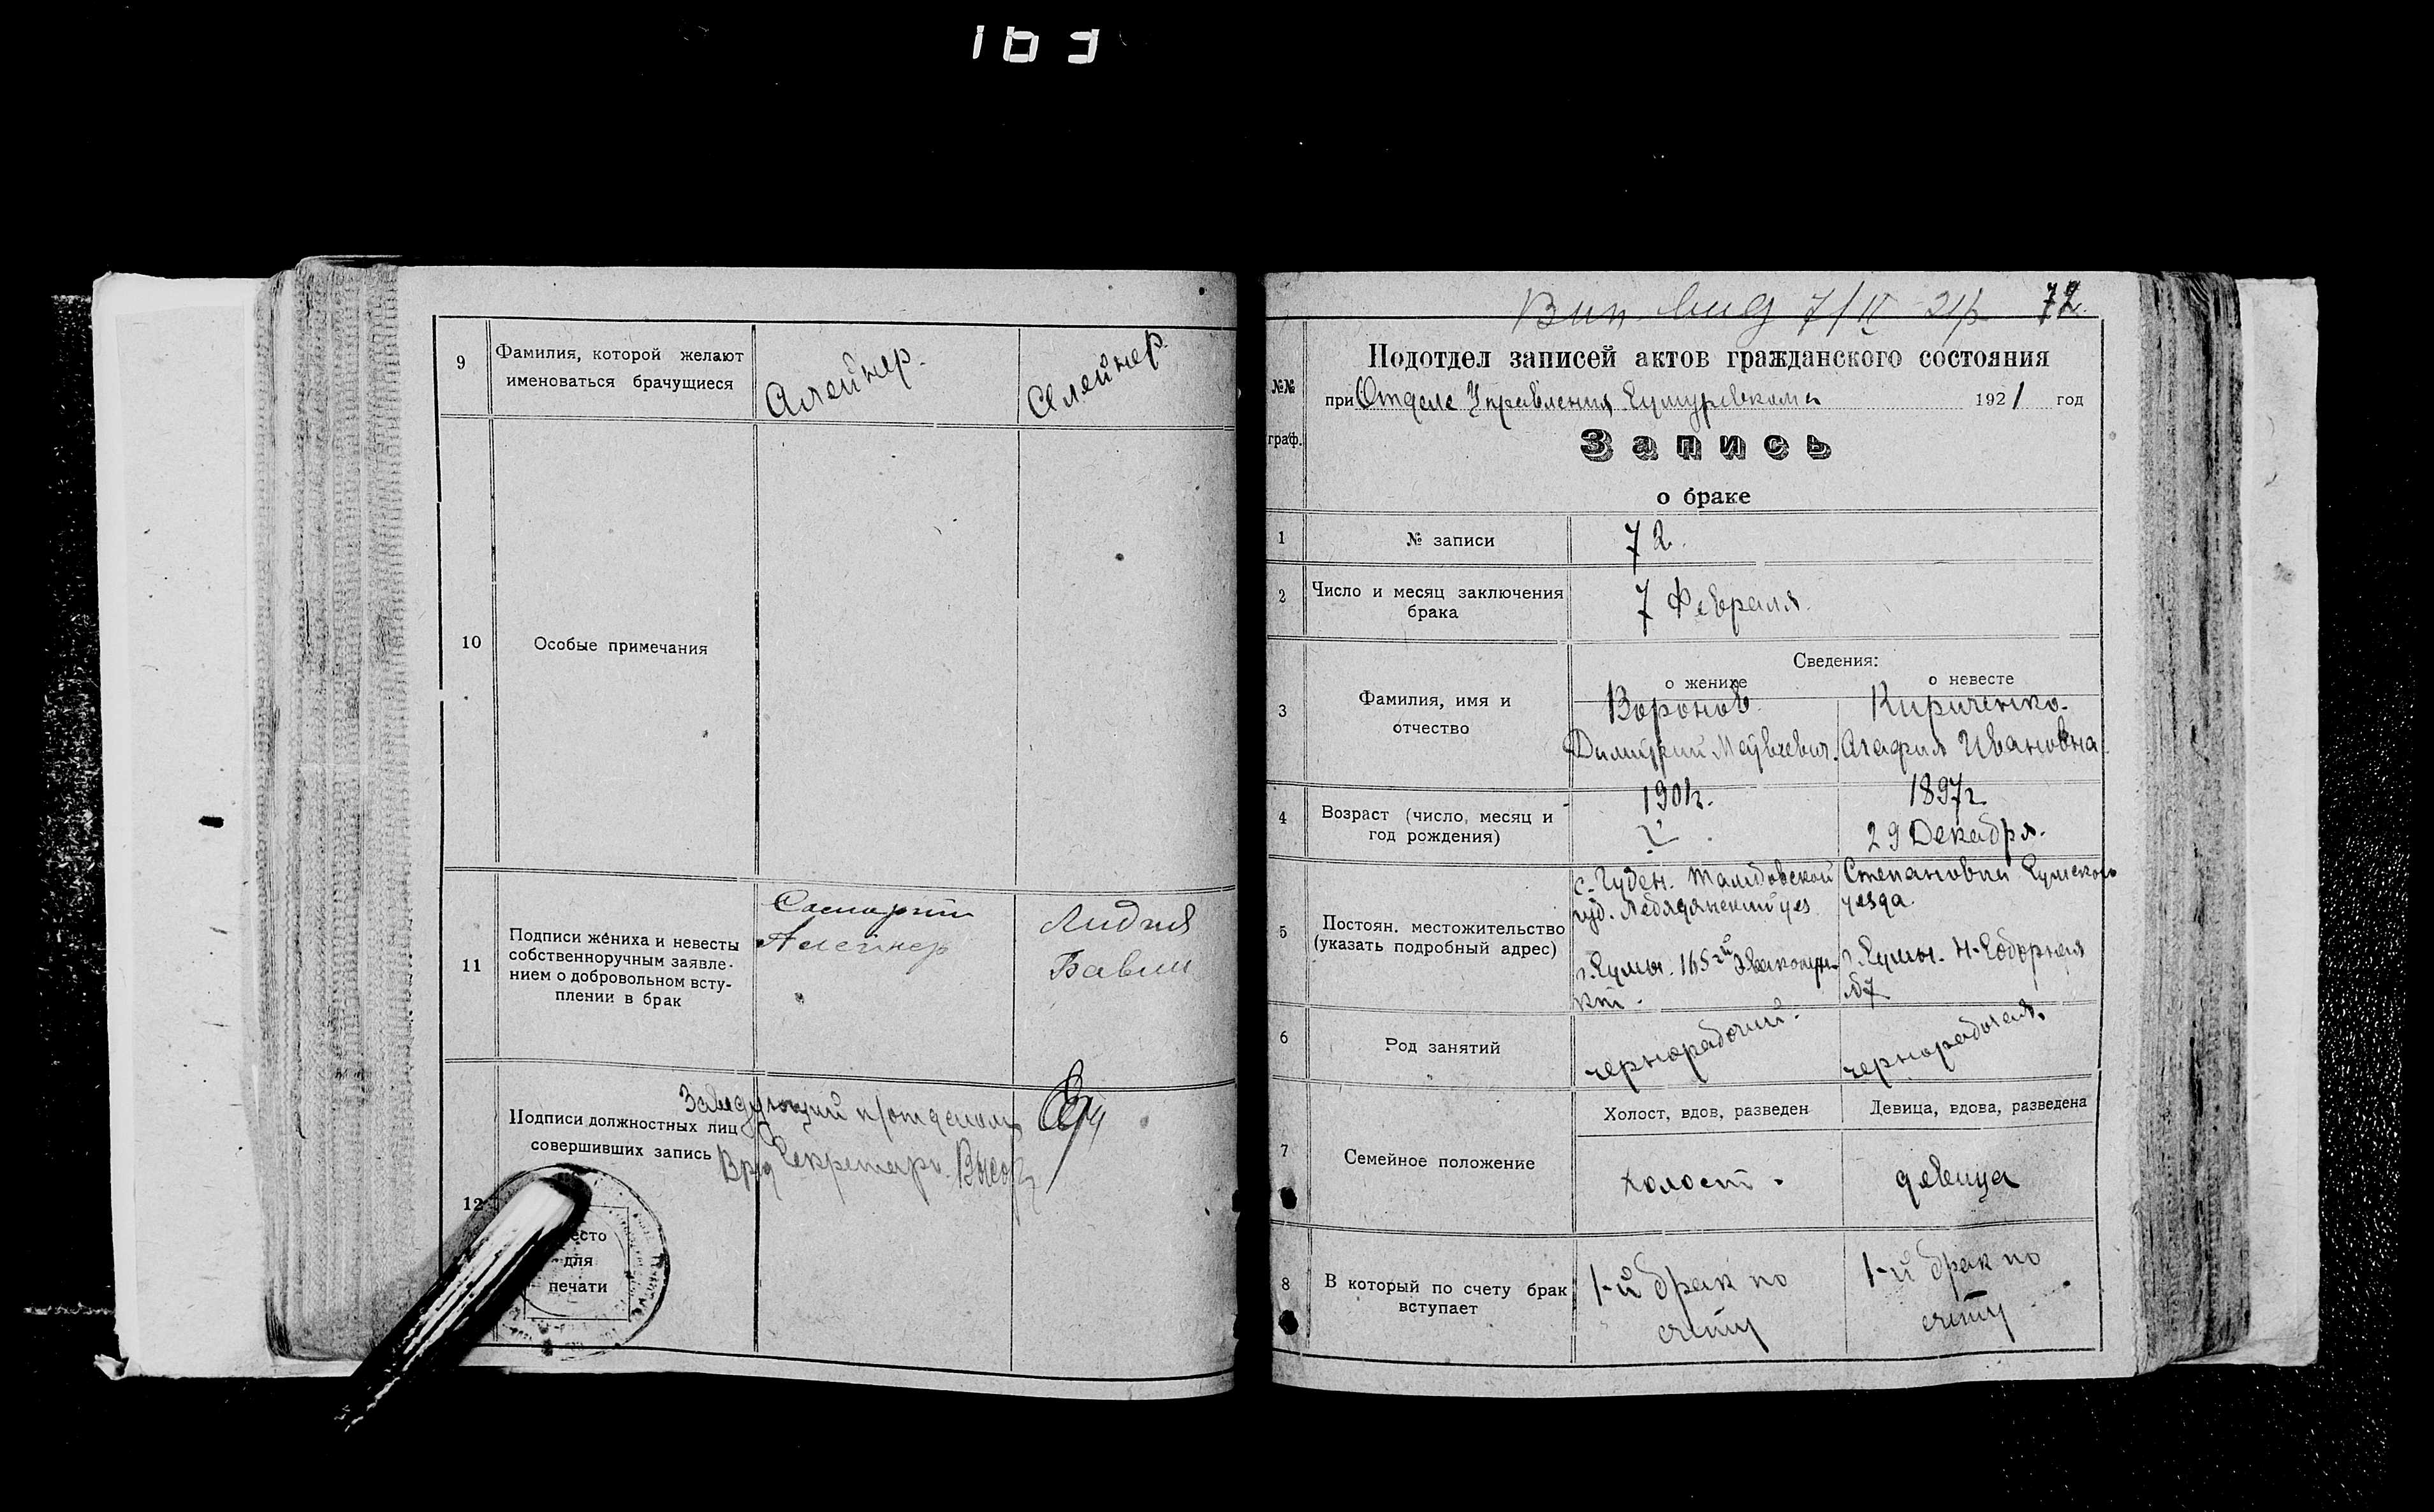 163
9
Фамилия, которой желают
именоваться брачущиеся
Алейнер.
Алейнер
10
Особые примечания
11
Подписи жениха и невесты
собственноручным заявле-
нием о добровольном всту-
плении в брак
Алейнер
Лидия
12
Подписи должностных лиц
совершивших запись
Заведующий п/отделом
Врид Секретаря
есто
для
печати
7/II 21 72.
№№
граф.
Подотдел записей актов гражданского состояния
при Отделе Управления 1921 год
Запись
о браке
1
№ записи
72.
2
Число и месяц заключения
брака
7 Февраля.
Сведения:
о женихе
о невесте
3
Фамилия, имя и
отчество
Воронов
Димитрий Матвеевич.
Кириченко.
Агафия Ивановна
4
Возраст (число, месяц и
год рождения)
1901г.
1897г.
29 Декабря.
5
Постоян. местожительство
(указать подробный адрес)
г. Сумы. 165
Степановки Сумского
уезда.
г. Сумы. Н-Соборная
№7
6
Род занятий
чернорабочий.
чернорабочая.
7
Семейное положение
Холост, вдов, разведен
Девица, вдова, разведена
холост.
девица
8
В который по счету брак
вступает
1-й брак по
счету
1-й брак по
счету